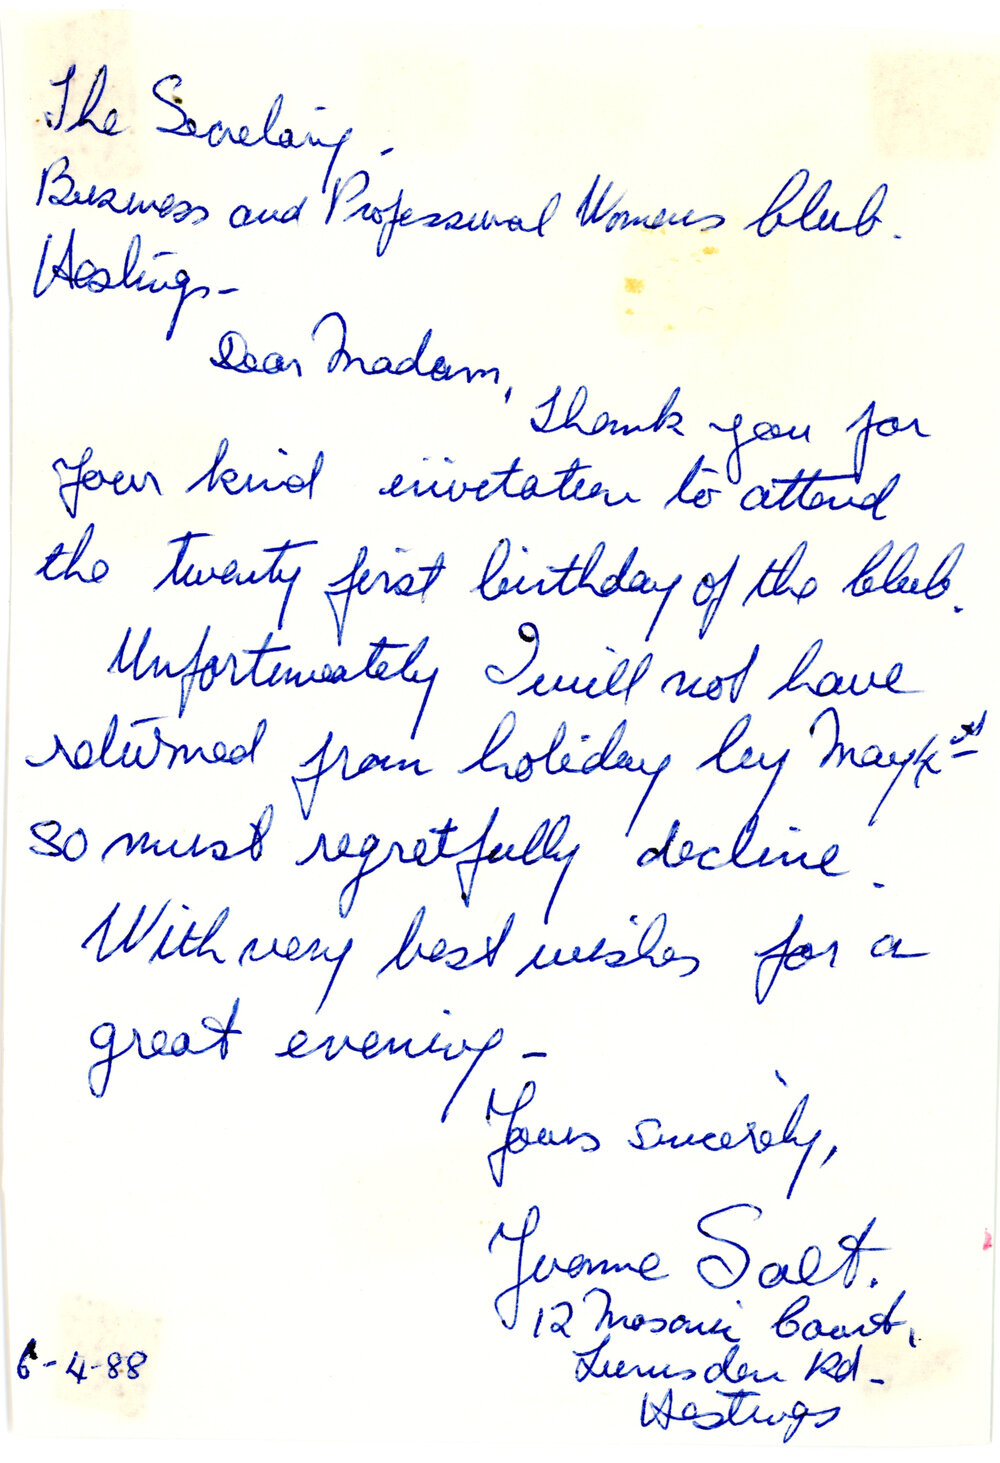 The Secretary.
Business and Professional Womens Club.
Hastings-
Dear Madam,
Thank you for
your kind invitation to attend
the twenty first birthday of the Club.
Unfortunately I will not have
returned from holiday by May
so must regretfully decline.
With very best wishes for a
great evening-
Yours sincerely,
Yvonne Salt.
12 Masonic Court,
Lumsden Rd-
Hastings
6-4-88